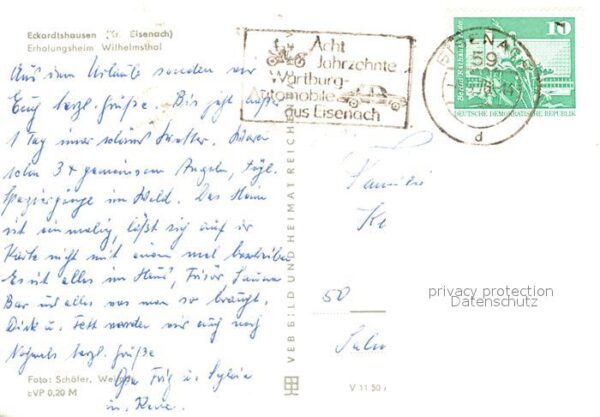 Eckardtshausen (Kr. Eisenach)
Erholungsheim Wilhelmsthal
Aus dem Urlaube senden wir
Euch herzl. Grüße. Bis jetzt außer
1 Tag immer schönes Wetter. Waren
schon 3x gemeinsam Angeln, tägl.
Spaziergänge im Wald. Das Heim
ist einmalig, läßt sich auf der
Karte nicht mit einem mal beschreiben
Es ist alles im Haus, Frisör, Sauna
Bar und alles was man so braucht.
Dick u. Fett werden wir auch noch
Nochmals herzl. Grüße
Opa Fritz u. Sylvia
u.
Foto: Schäfer,
EVP 0,20 M
VEB BILD UND HEIMAT REICHENBACH
V 11 50
Acht
Jahrzehnte
Wartburg-
Automobile
aus Eisenach
EISENACH
59
d
10
DEUTSCHE DEMOKRATISCHE REPUBLIK
Familie
50
privacy protection
Datenschutz